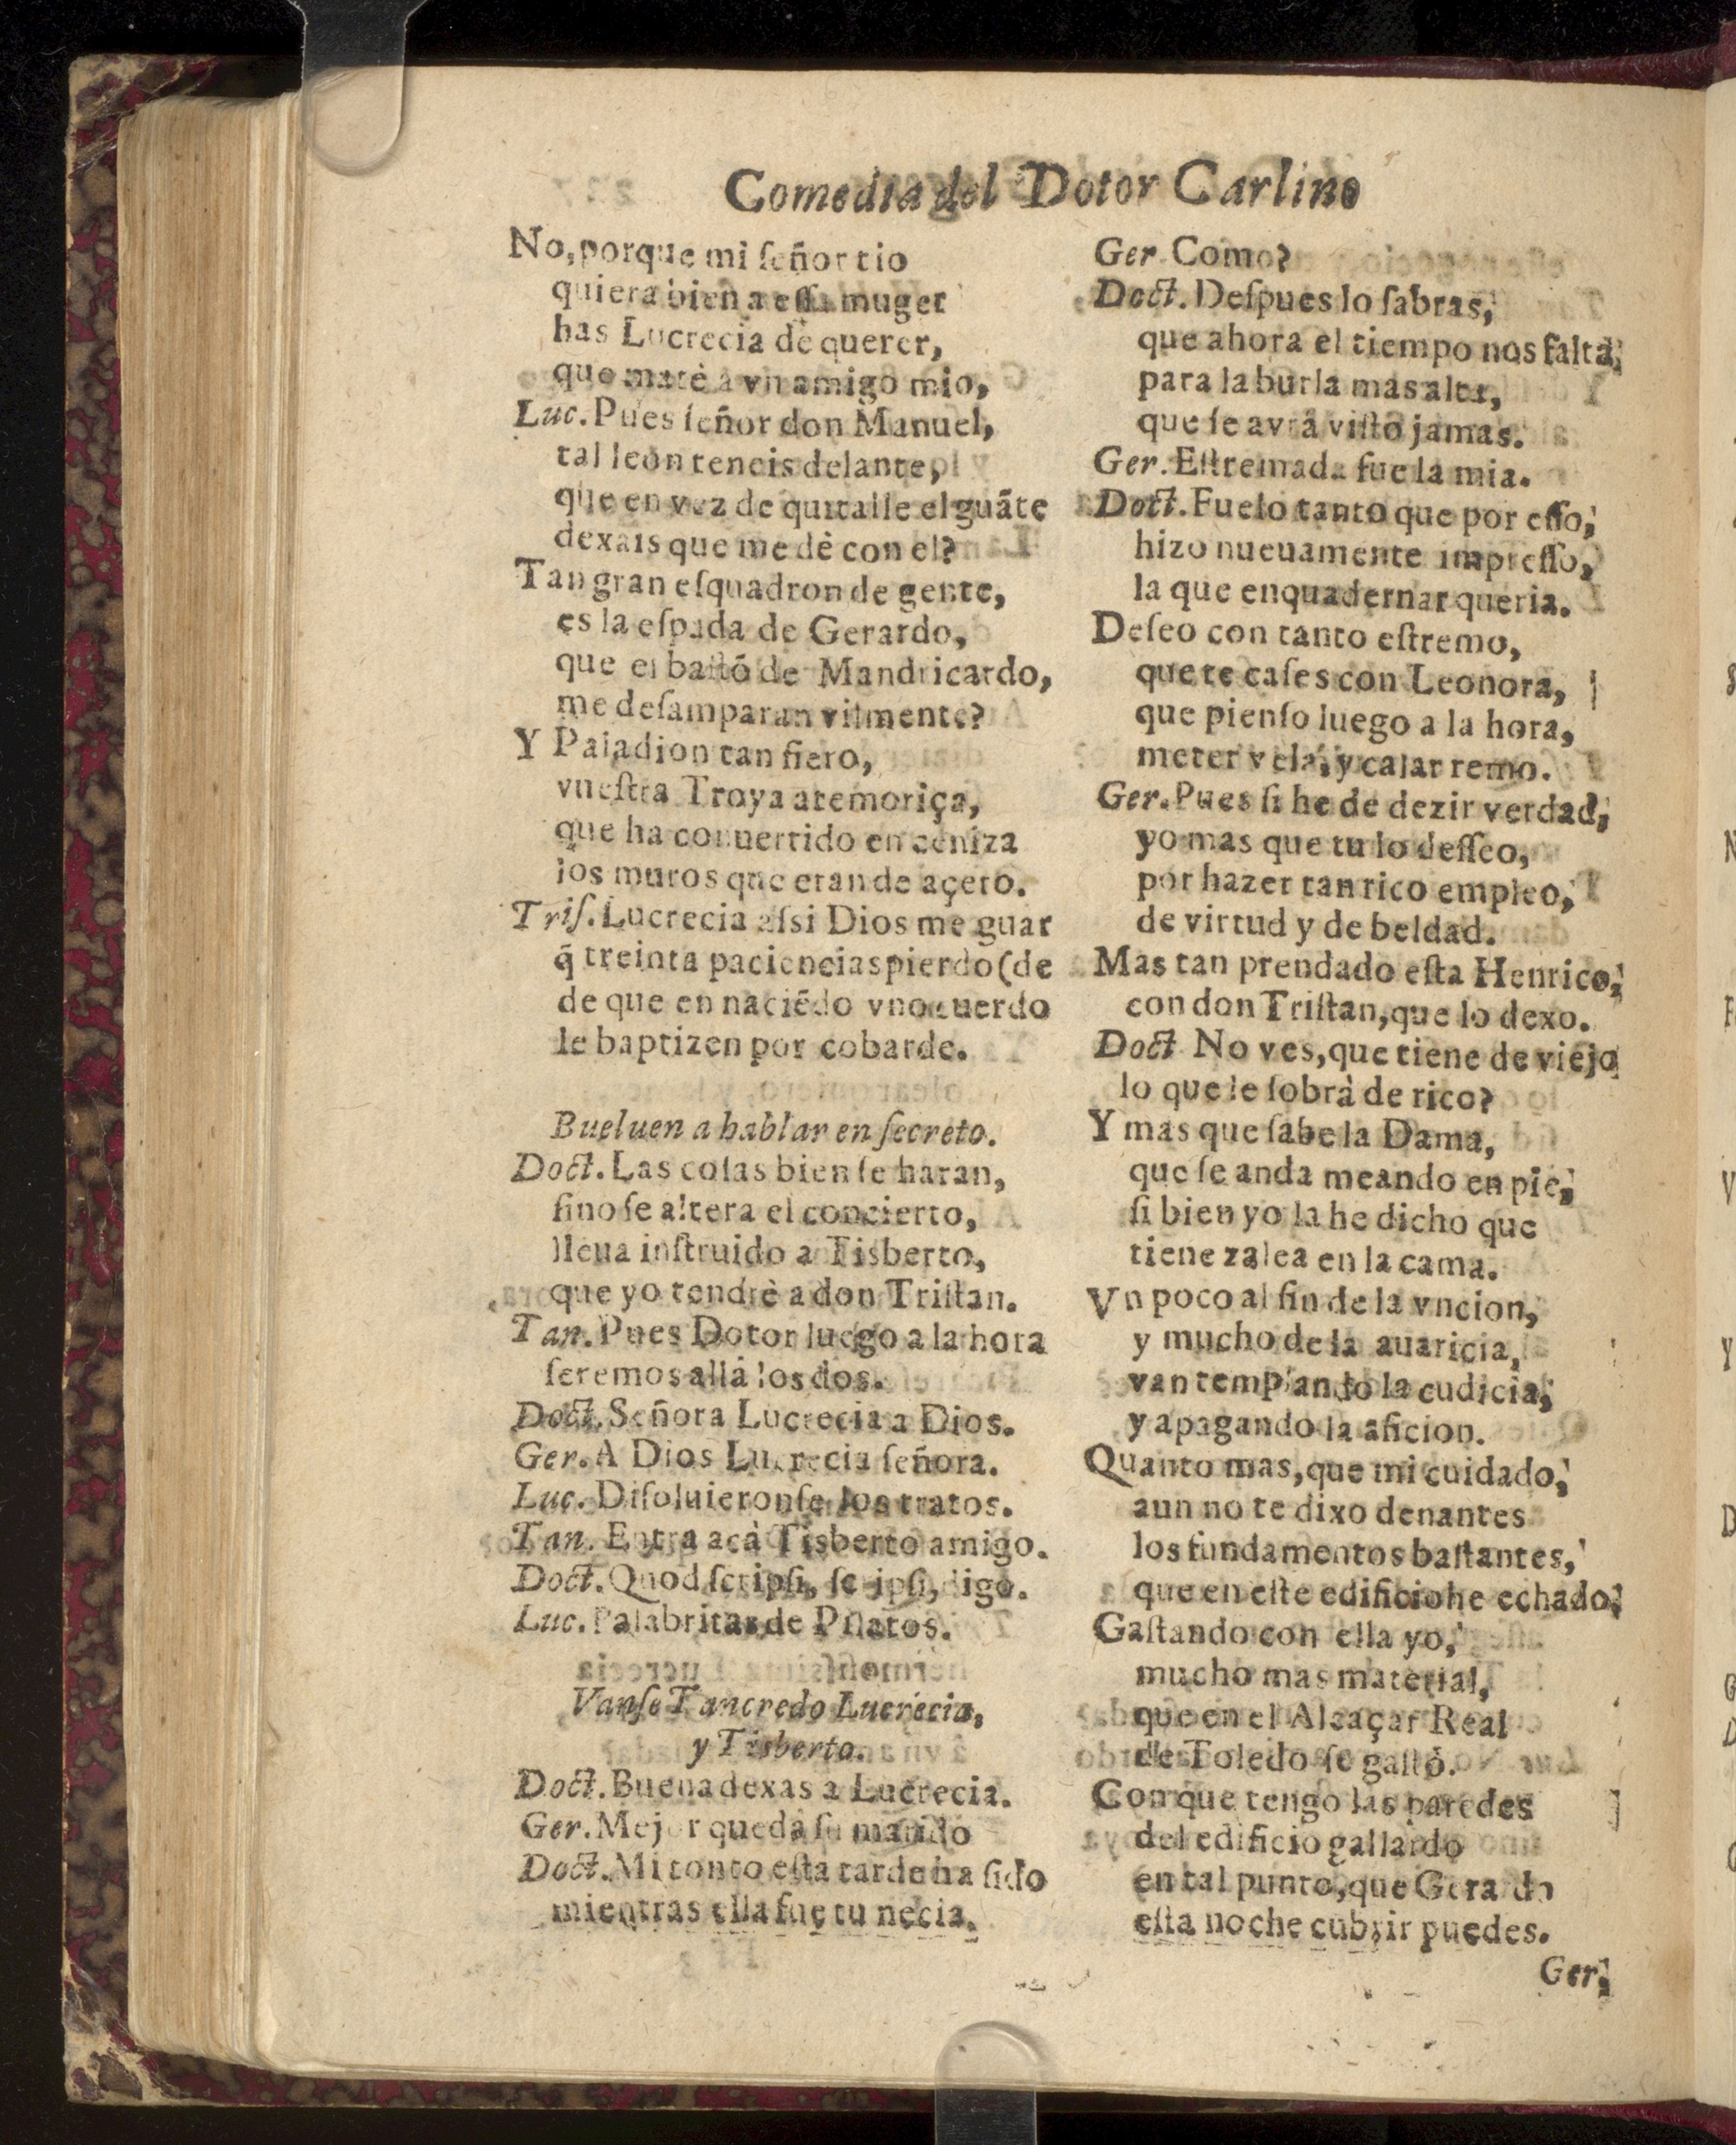 Comedia del Dotor Carlino
No, porque mi ſeñor tio
quiera bien a eſſa muger
has Lucrecia de querer,
que matè a vn amigo mio,
Luc. Pues ſeñor don Manuel,
tal leon teneis delante,
que en vez de quitalle el guāte
dexais que me dè con el?
Tan gran eſquadron de gente,
es la eſpada de Gerardo,
que el baſtō de Mandricardo,
me deſamparan vilmente?
Y Paladion tan fiero,
vueſtra Troya atemoriça,
que ha conuertido en ceniza
los muros que eran de açero.
Triſ. Lucrecia aſsi Dios me guar
q̄ treinta paciencias pierdo (de
de que en naciēdo vno cuerdo
le baptizen por cobarde.
Bueluen a hablar en ſecreto.
Doct. Las coſas bien ſe haran,
ſino ſe altera el concierto,
lleua inſtruido a Tisberto,
que yo tendrè a don Triſtan.
Tan. Pues Dotor luego a la hora
ſeremos allà los dos.
Doct. Señora Lucrecia a Dios.
Ger. A Dios Lucrecia ſeñora.
Luc. Diſoluieronſe los tratos.
Tan. Entra acà Tisberto amigo.
Doct. Quod ſcripſi, ſcripſi, digo.
Luc. Palabritas de Pilatos.
Vanſe Tancredo Lucrecia,
y Tisberto.
Doct. Buena dexas a Lucrecia.
Ger. Mejor queda ſu marido
Doct. Mi tonto eſta tarde ha ſido
mientras ella fue tu necia.
Ger. Como?
Doct. Deſpues lo ſabras,
que ahora el tiempo nos falta,
para la burla mas alta,
que ſe avrà viſto jamas.
Ger. Eſtremada fue la mia.
Doct. Fuelo tanto que por eſſo,
hizo nueuamente impreſſo,
la que enquadernar queria.
Deſeo con tanto eſtremo,
que te caſes con Leonora,
que pienſo luego a la hora,
meter vela, y calar remo.
Ger. Pues ſi he de dezir verdad,
yo mas que tu lo deſſeo,
por hazer tan rico empleo,
de virtud y de beldad.
Mas tan prendado eſta Henrico,
con don Triſtan, que lo dexo.
Doct No ves, que tiene de viejo
lo que le ſobrà de rico?
Y mas que ſabe la Dama,
que ſe anda meando en pie,
ſi bien yo la he dicho que
tiene zalea en la cama.
Vn poco al fin de la vncion,
y mucho de la auaricia,
van templando la cudicia,
y apagando la aficion.
Quanto mas, que mi cuidado,
aun no te dixo denantes
los fundamentos baſtantes,
que en eſte edificio he echado,
Gaſtando con ella yo,
mucho mas material,
que en el Alcaçar Real
de Toledo ſe gaſtò.
Con que tengo las paredes
del edificio gallardo
en tal punto, que Gerardo
eſta noche cubrir puedes.
Ger,